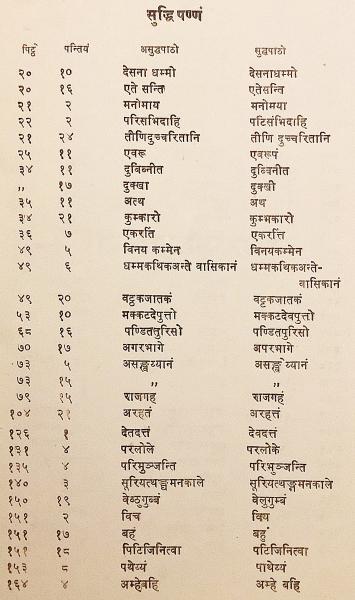 सुद्धिपण्णं
पिट्ठे पन्तियं असुद्धपाठो सुद्धपाठो
२० १० देसना धम्मो देसनाधम्मो
२० १६ एते सन्ति एतेसन्ति
२१ २ मनोमाय मनोमया
२२ २ परिसभिदाहि पटिसंभिदाहि
२१ २४ तीणिदुच्चरितानि तीणि दुच्चरितानि
२५ ११ एवरू एवरूपं
३४ ११ दुबिनीत दुव्विनीत
" १७ दुक्खा दुक्खी
३५ ११ अत्थ अथ
३४ २१ कुम्कारो कुम्भकारो
३६ ७ एकरत्तिं एकरत्तिं
४९ ५ विनय कम्मेन विनयकम्मेन
४९ ६ धम्मकथिकअन्ते वासिकानं धम्मकथिकअन्ते-
वासिकानं
४९ २० वट्टकजातकं वट्टकजातकं
५३ १० मक्कटदेवपुत्तो मक्कटदेवपुत्तो
६८ १६ पण्डिततुरिसो पण्डितपुरिसो
७० १७ अगरभागे अपरभागे
७३ ५ असङ्ख्यानं असङ्खेय्यानं
७३ १५ "
७९ १५ राजगहं राजगहं
१०४ २१ अरहतं अरहत्तं
१२६ १ देतदत्तं देवदत्तं
१३१ ४ परलोले परलोके
१३५ ४ परिमुञ्जन्ति परिभुञ्जन्ति
१४० ३ सूरियत्थङ्गमनकाले सूरियत्थङ्गमनकाले
१५० १९ वेळुगुब्बं वेलुगुम्बं
१५१ २ विच विय
१५१ १७ बहं बहुं
१५१ १८ पिटिजिनित्वा पटिजिनित्वा
१५३ ८ पथेय्यं पाथेय्यं
१६४ ४ अम्हेबहि अम्हे बहि